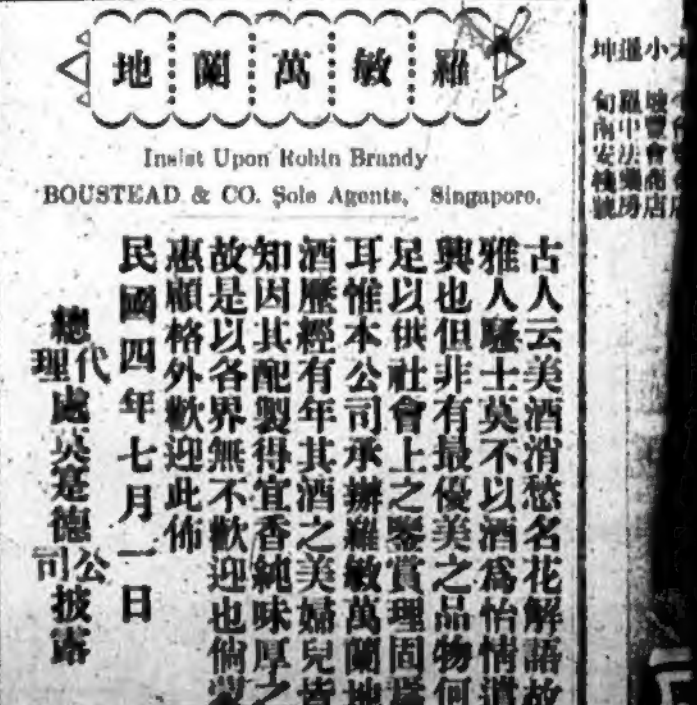 羅敏萬蘭地
Insist Upon Robin Brandy
BOUSTEAD & CO. Sole Agents, Singapore.
古人云美酒消愁名花解語故
雅人騷士莫不以酒爲怡情遣
興也但非有最優美之品物何
足以供社會上之鑒賞理固
耳惟本公司承辦羅敏萬蘭地
酒歷經有年其酒之美婦兒皆
知因其配製得宜香純味厚之
故是以各界無不歡迎也倘蒙
惠顧格外歡迎此佈
民國四年七月一日
總代理處德公司披露
小暹坤
中法藥房
南安棧號